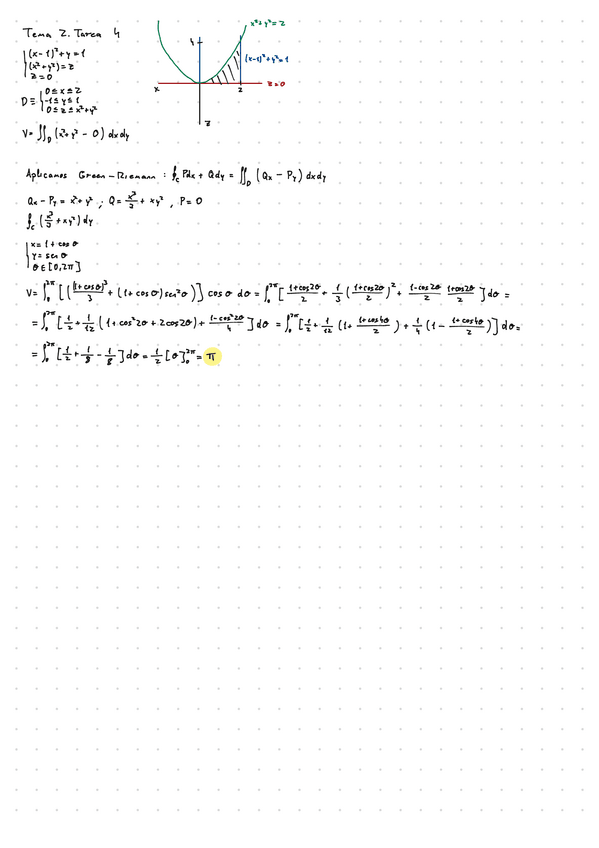 Tema 2. Tarea 4
(x-1)²+y=1
(x²+y²)=z
z=0
D≡ { 0≤x≤2
-1≤y≤1
0≤z≤x²+y²
V=∬_D (x²+y²-0) dxdy
x²+y²=z
4
(x-1)²+y²=1
x
2
z=0
z
Aplicamos Green-Riemann: ∮_C Pdx + Qdy = ∬_D (Qx - Py) dxdy
Qx - Py = x²+y² ; Q= x³/3 + xy² , P=0
∮_C (x³/3 + xy²) dy
x=1+cosθ
y=senθ
θ∈[0,2π]
V=∫₀^2π [((1+cosθ)³/3 + (1+cosθ)sen²θ)] cosθ dθ = ∫₀^2π [(1+cos2θ)/2 + 1/3 ((1+cos2θ)/2)² + (1-cos2θ)/2 (1+cos2θ)/2] dθ =
= ∫₀^2π [1/2 + 1/12 (1+cos²2θ+2cos2θ) + (1-cos²2θ)/4] dθ = ∫₀^2π [1/2 + 1/12 (1+ (1+cos4θ)/2) + 1/4 (1- (1+cos4θ)/2)] dθ =
= ∫₀^2π [1/2 + 1/8 - 1/8] dθ = 1/2 [θ]₀^2π = π